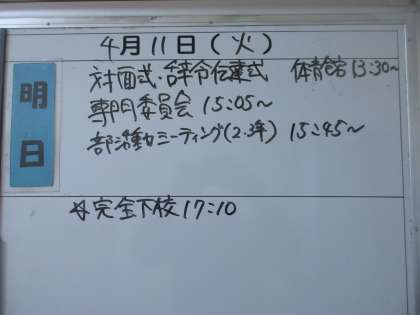 4月11日(火)
明日
対面式・辞令伝達式 体育館 13:30〜
専門委員会 15:05〜
部活動ミーティング(2.3年) 15:45〜
完全下校 17:10